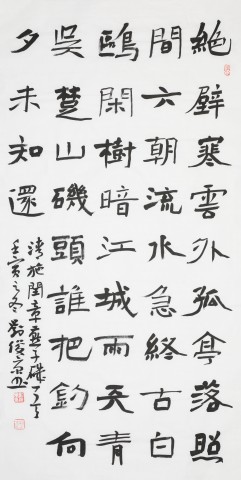 絕壁寒雲外孤亭落照
間六朝流水急終古白
鷗閑樹暗江城雨天青
吳楚山磯頭誰把釣向
夕未知還
清施閏章燕子磯
壬寅之冬劉